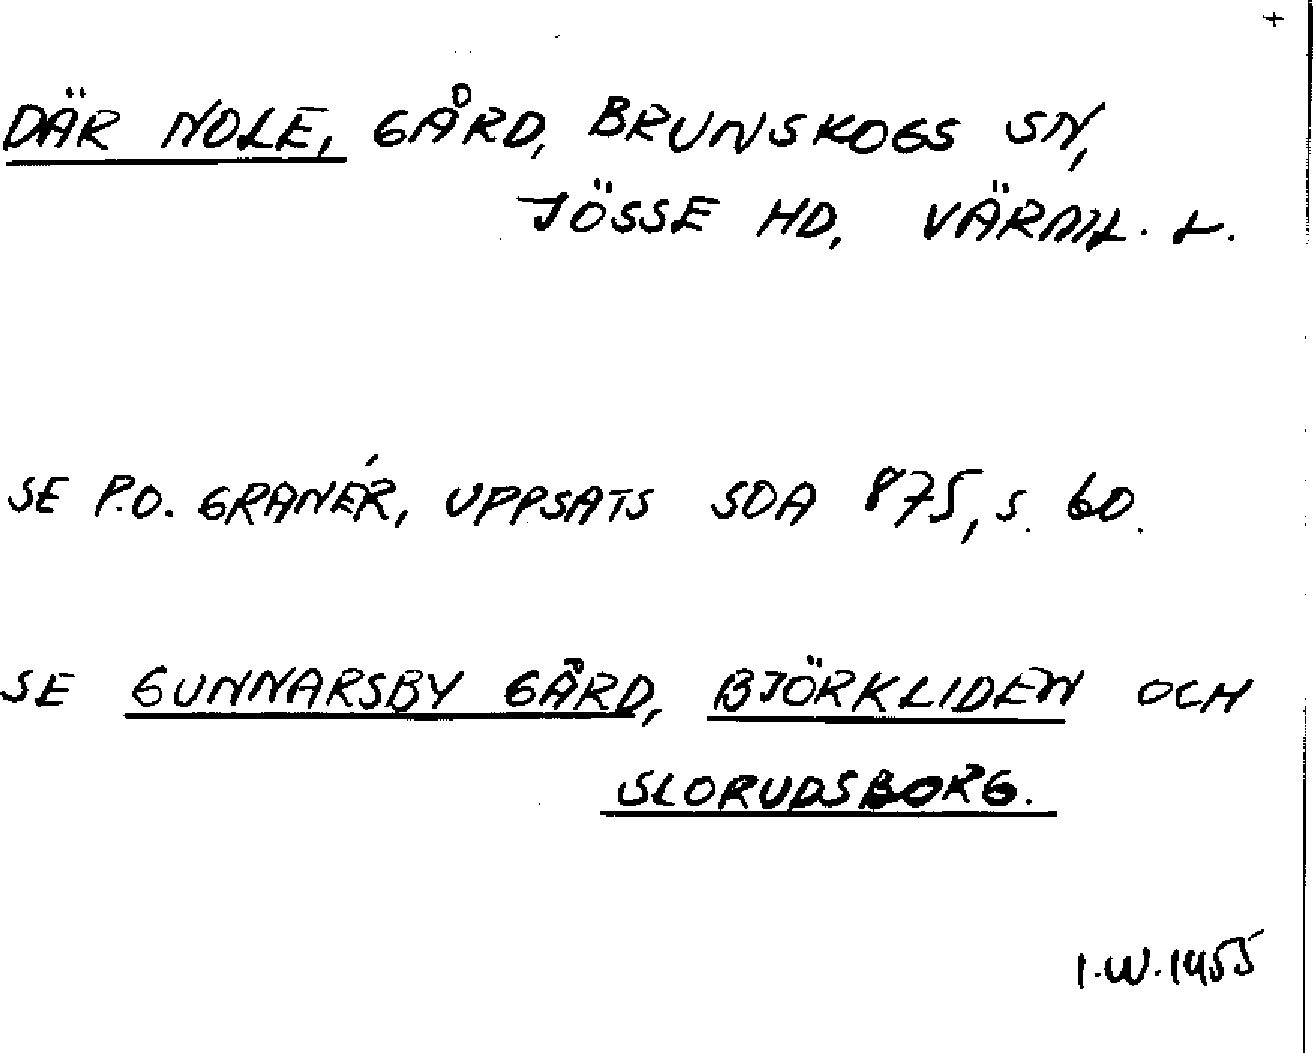 +
DÄR NOLE, GÅRD, BRUNSKOGS SN,
JÖSSE HD, VÄRML. L.
SE P.O. GRANÉR, UPPSATS SOA 875, S. 60.
SE GUNNARSBY GÅRD, BJÖRKLIDEN OCH
SLORUDSBORG.
I.W. 1955